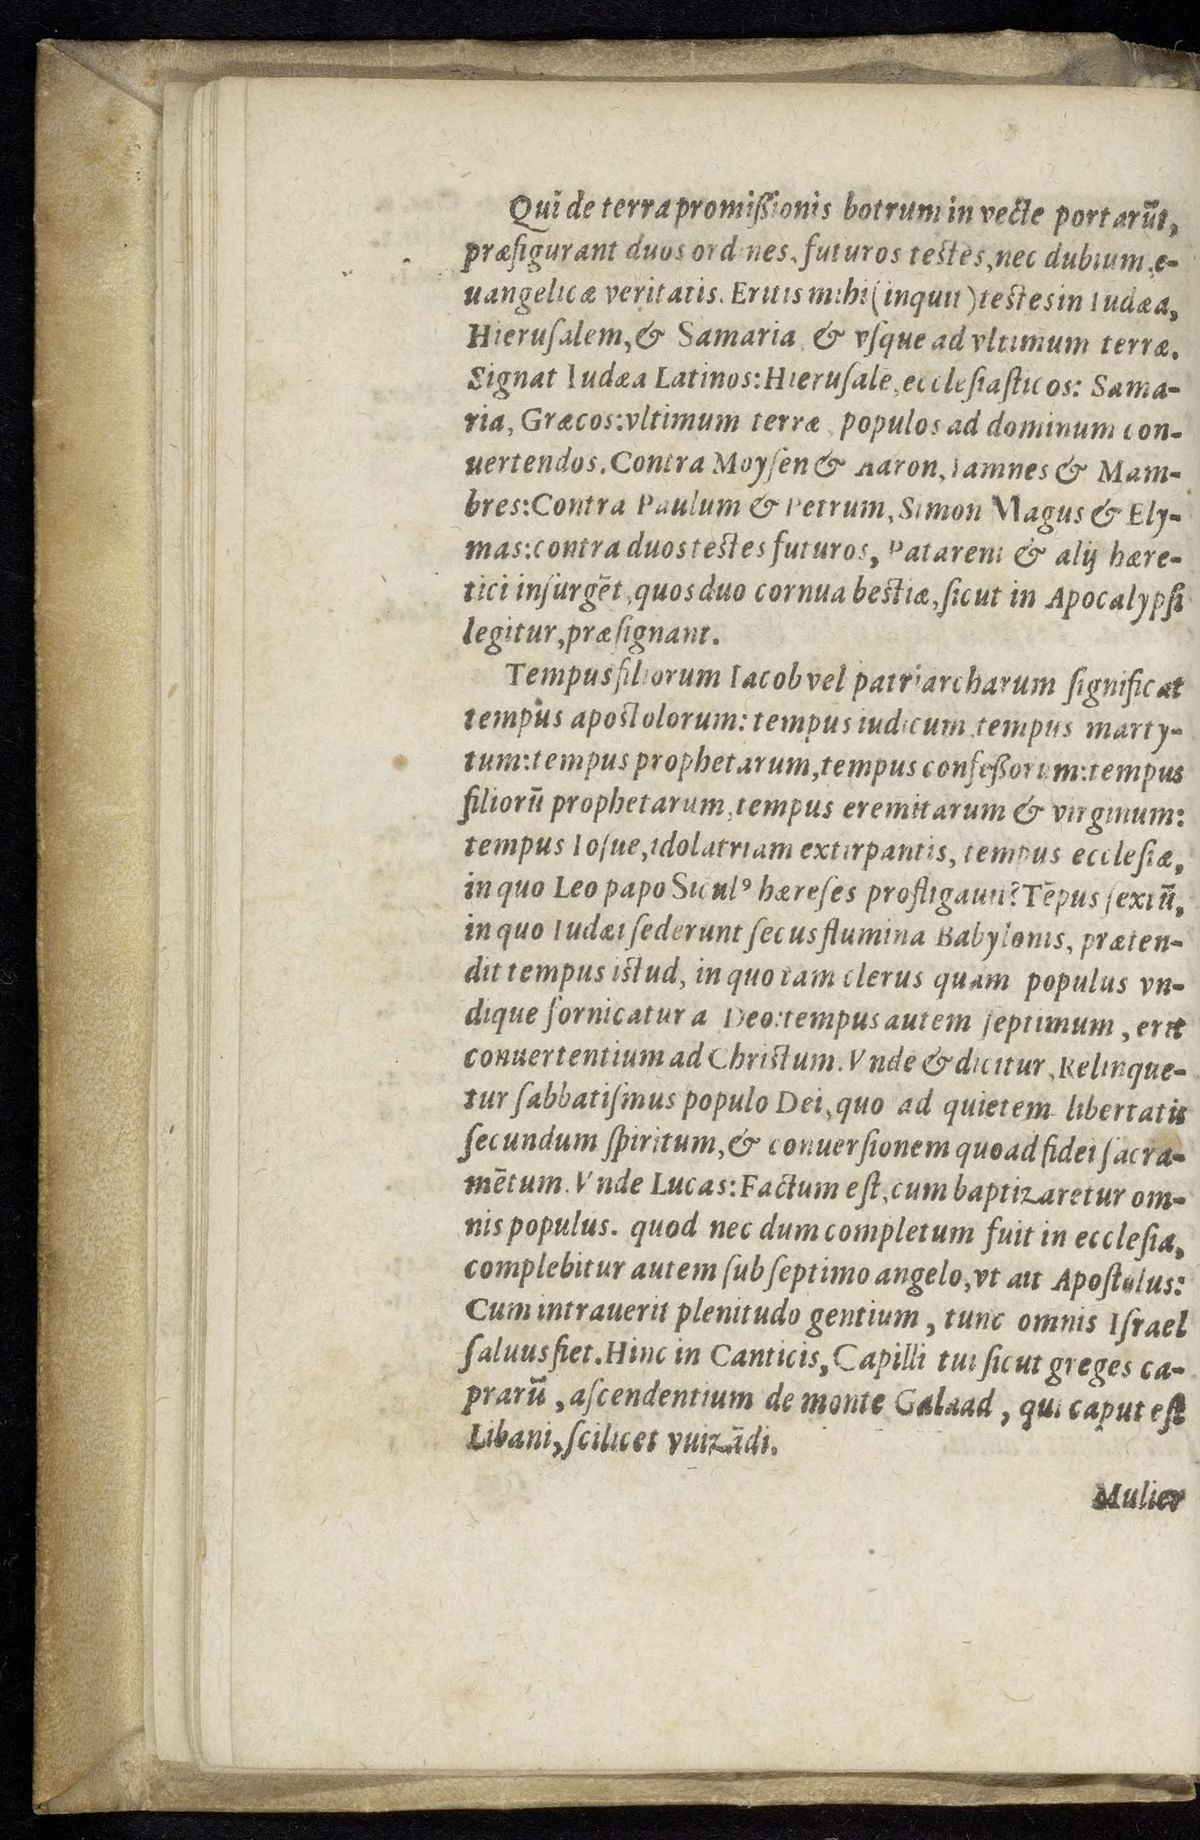 Qui de terra promiſſionis botrum in vecte portarūt,
præfigurant duos ordines, futuros testes, nec dubium, e-
uangelicæ veritatis. Eritis mihi (inquit) testes in Iudæa,
Hieruſalem, & Samaria & vſque ad vltimum terræ.
Signat Iudæa Latinos: Hieruſale, eccleſiaſticos: Sama-
ria, Græcos: vltimum terræ, populos ad dominum con-
uertendos. Contra Moyſen & Aaron, Iamnes & Mam-
bres: Contra Paulum & Petrum, Simon Magus & Ely-
mas: contra duos testes futuros, Patareni & alij hære-
tici inſurgēt, quos duo cornua bestiæ, ſicut in Apocalypſi
legitur, præſignant.
Tempus filiorum Iacob vel patriarcharum ſignificat
tempus apostolorum: tempus iudicum, tempus marty-
tum: tempus prophetarum, tempus confeſſorum: tempus
filiorū prophetarum, tempus eremitarum & virginum:
tempus Ioſue, idolatriam extirpantis, tempus eccleſiæ,
in quo Leo papo Siculꝰ hæreſes profligauit? Tēpus ſextū,
in quo Iudæi ſederunt ſecus flumina Babylonis, præten-
dit tempus istud, in quo tam clerus quam populus vn-
dique fornicatur a Deo: tempus autem ſeptimum, erit
conuertentium ad Christum. Vnde & dicitur, Relinque-
tur ſabbatiſmus populo Dei, quo ad quietem libertatis
ſecundum ſpiritum, & conuerſionem quoad fidei ſacra-
mētum. Vnde Lucas: Factum eſt, cum baptizaretur om-
nis populus. quod nec dum completum fuit in eccleſia,
complebitur autem ſub ſeptimo angelo, vt ait Apoſtolus:
Cum intrauerit plenitudo gentium, tunc omnis Iſrael
ſaluus fiet. Hinc in Canticis, Capilli tui ſicut greges ca-
prarū, aſcendentium de monte Galaad, qui caput eſt
Libani, ſcilicet vuizādi.
Mulier